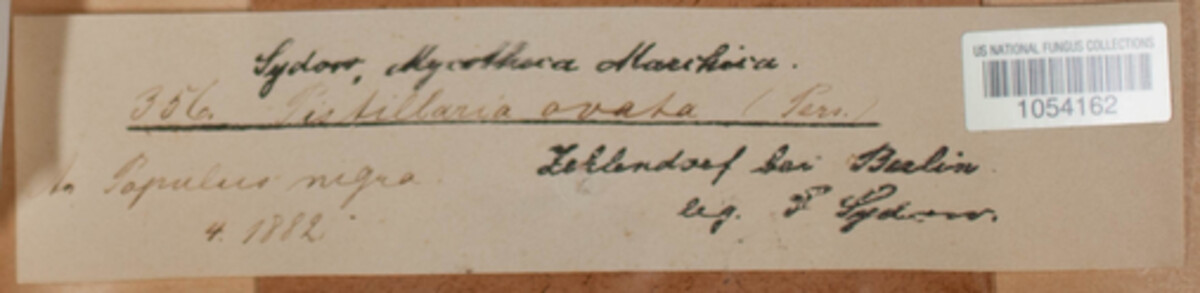 Sydow, Mycotheca Marchica.
356. Pistillaria ovata (Pers.)
An Populus nigra
4. 1882
Zehlendorf bei Berlin
leg. P Sydow.
US NATIONAL FUNGUS COLLECTIONS
1054162